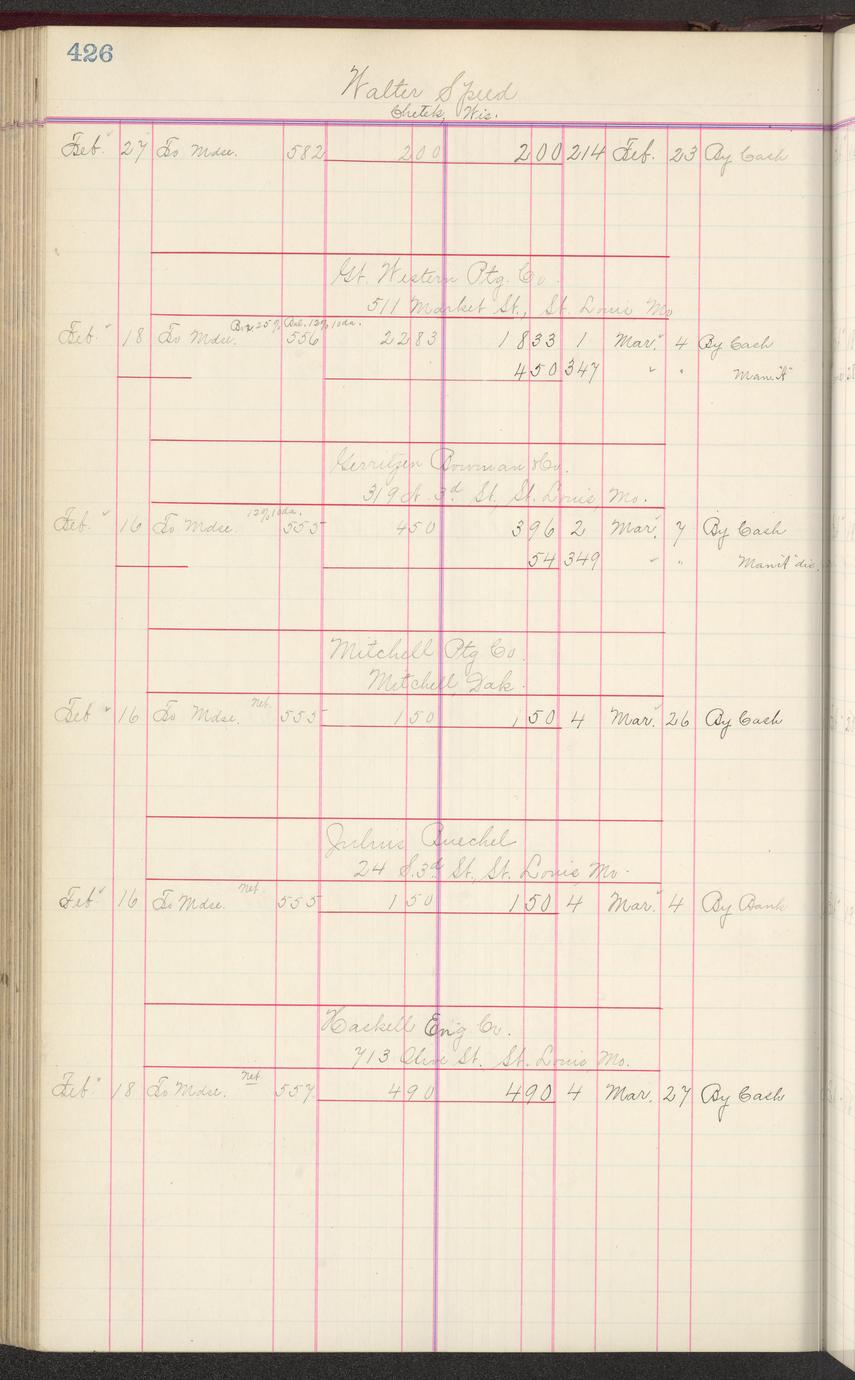 426
Walter Speed
Chetek, Wis.
Feb. 27 To Mdse. 582 200 200 214 Feb. 23 By Cash
Gt. Western Ptg. Co.
511 Market St., St. Louis Mo
Feb. 18 To Mdse. 25% Bal. 12% 10da. 556 2283 1833 1 Mar. 4 By Cash
450 347 " " Man. "A"
Gerritzen Bowman & Co.
319 N. 3d St, St. Louis, Mo.
Feb. 16 To Mdse. 12% 10da. 555 450 396 2 Mar. 7 By Cash
54 349 " " Man "A" dis.
Mitchell Ptg Co.
Mitchell, Dak.
Feb 16 To Mdse. Net. 555 150 150 4 Mar. 26 By Cash
Julius Buechel
24 S. 3d St, St. Louis Mo.
Feb 16 To Mdse. Net. 555 150 150 4 Mar. 4 By Bank
Haskell Eng Co.
713 Olive St. St. Louis Mo.
Feb. 18 To Mdse. Net 557 490 490 4 Mar. 27 By Cash